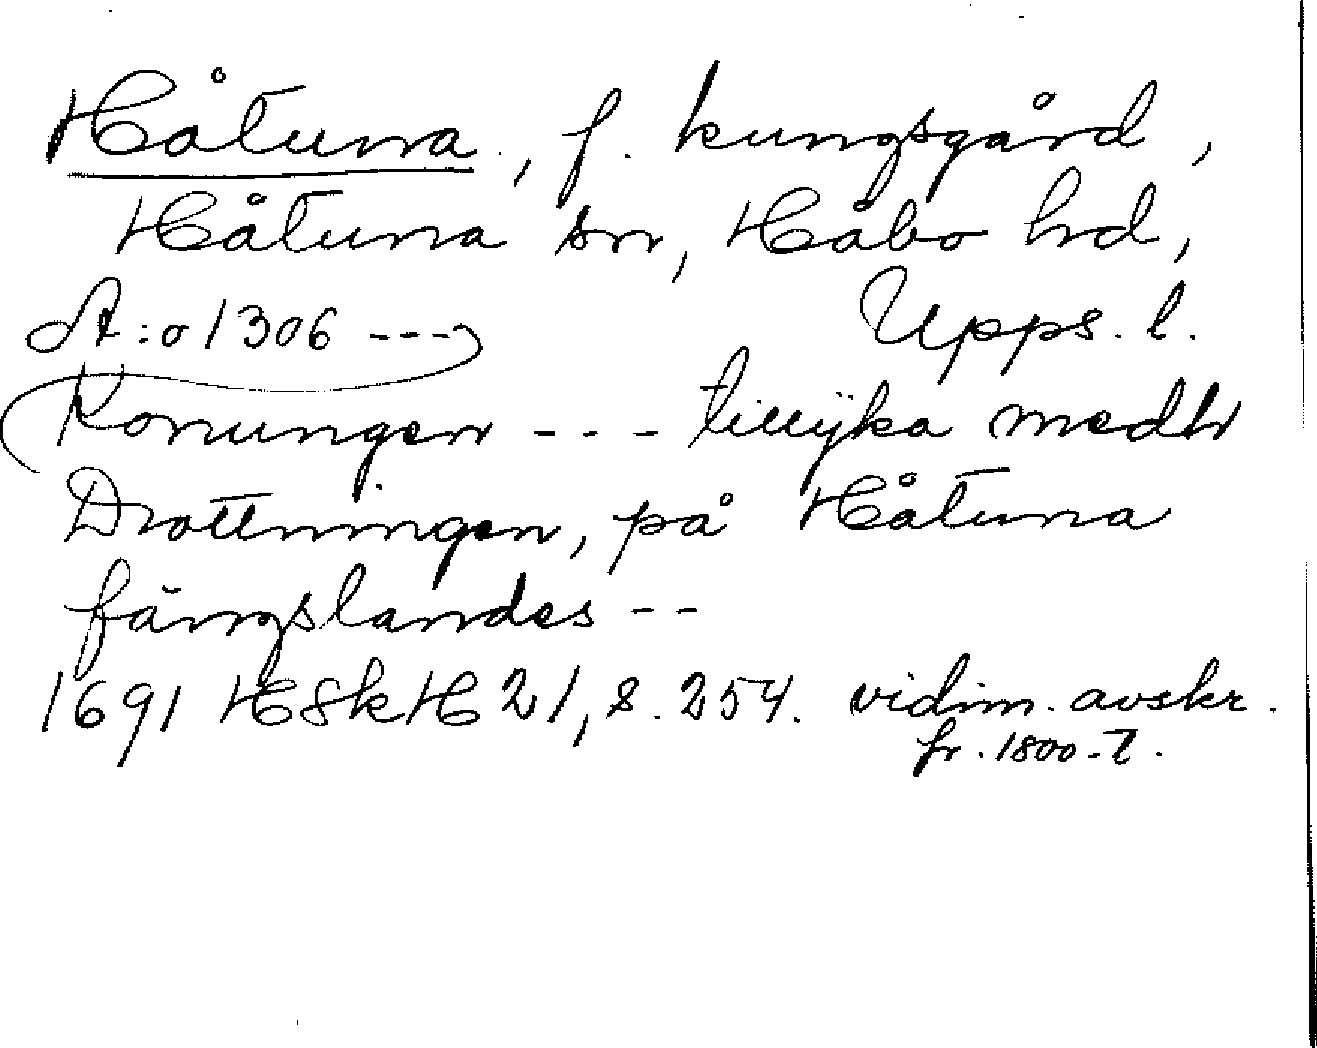 Håtuna., f. kungsgård,
Håtuna sn, Håbo hd,
Upps. l.
A:o 1306 ---
Konungen --- tillijka medh
Drottningen, på Håtuna
fängslandes --
1691 HSkH 21, s. 254. vidim. avskr.
fr. 1800-t.